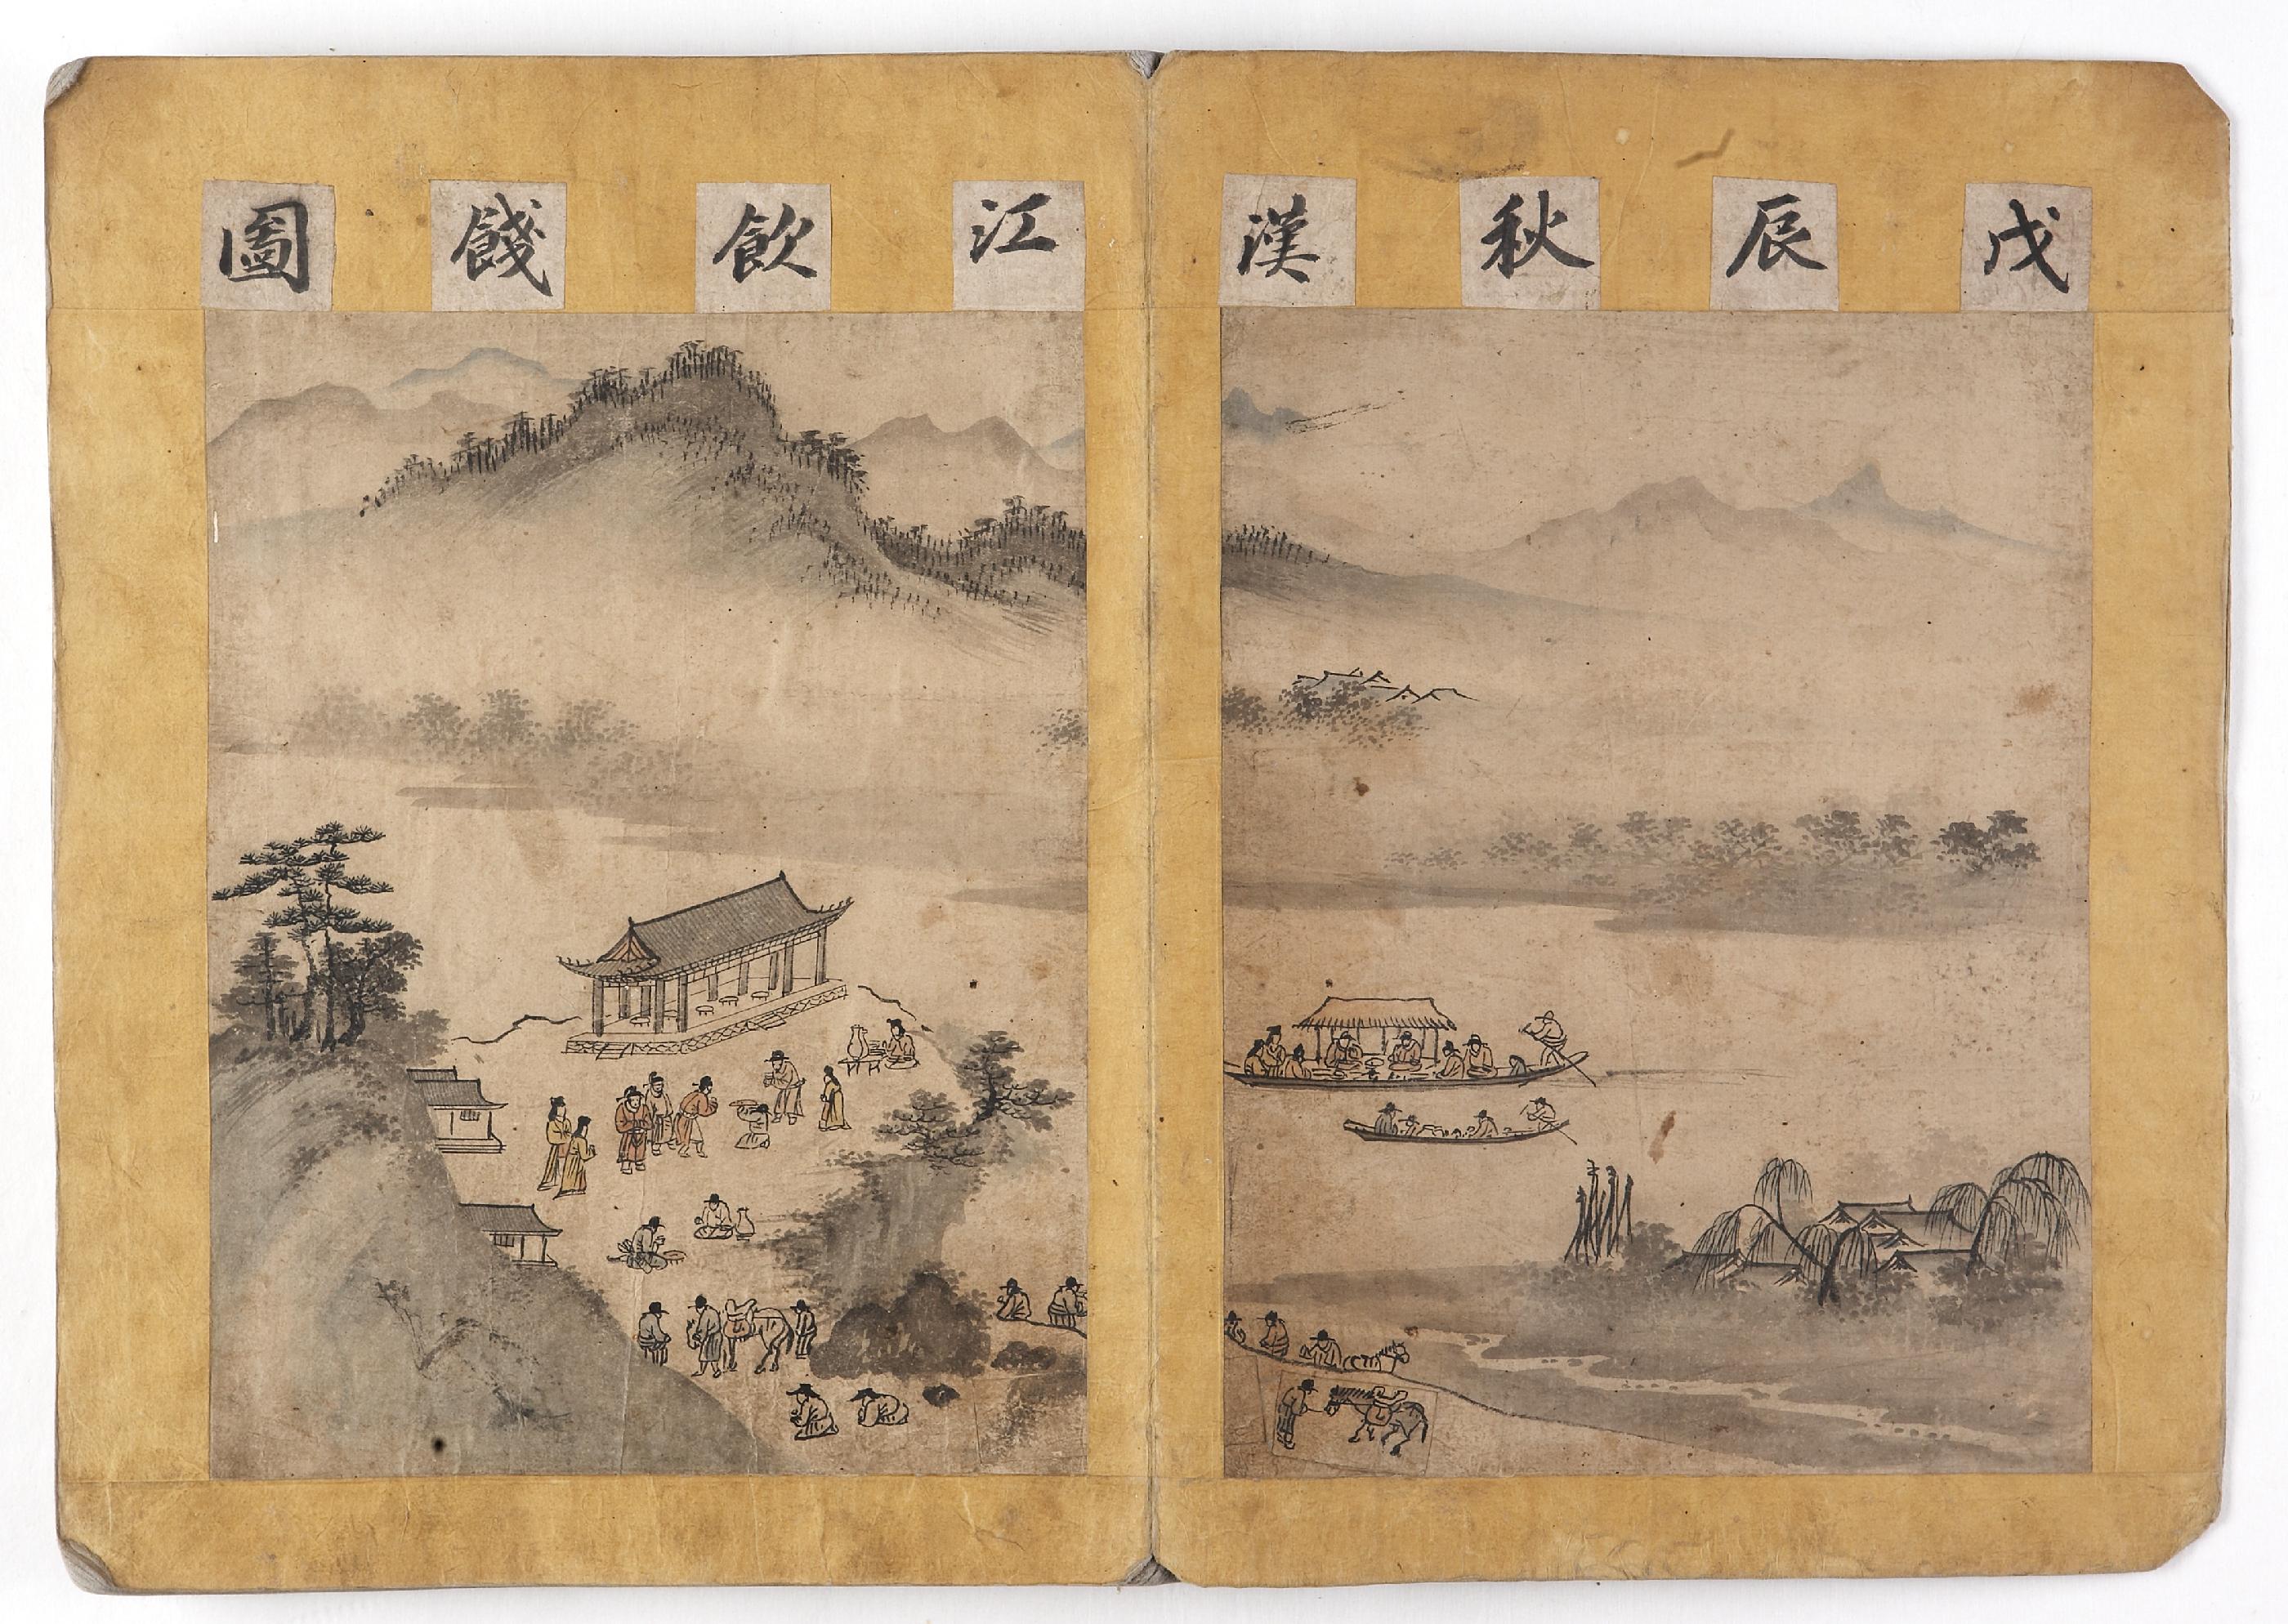 戊辰秋漢江飮餞圖